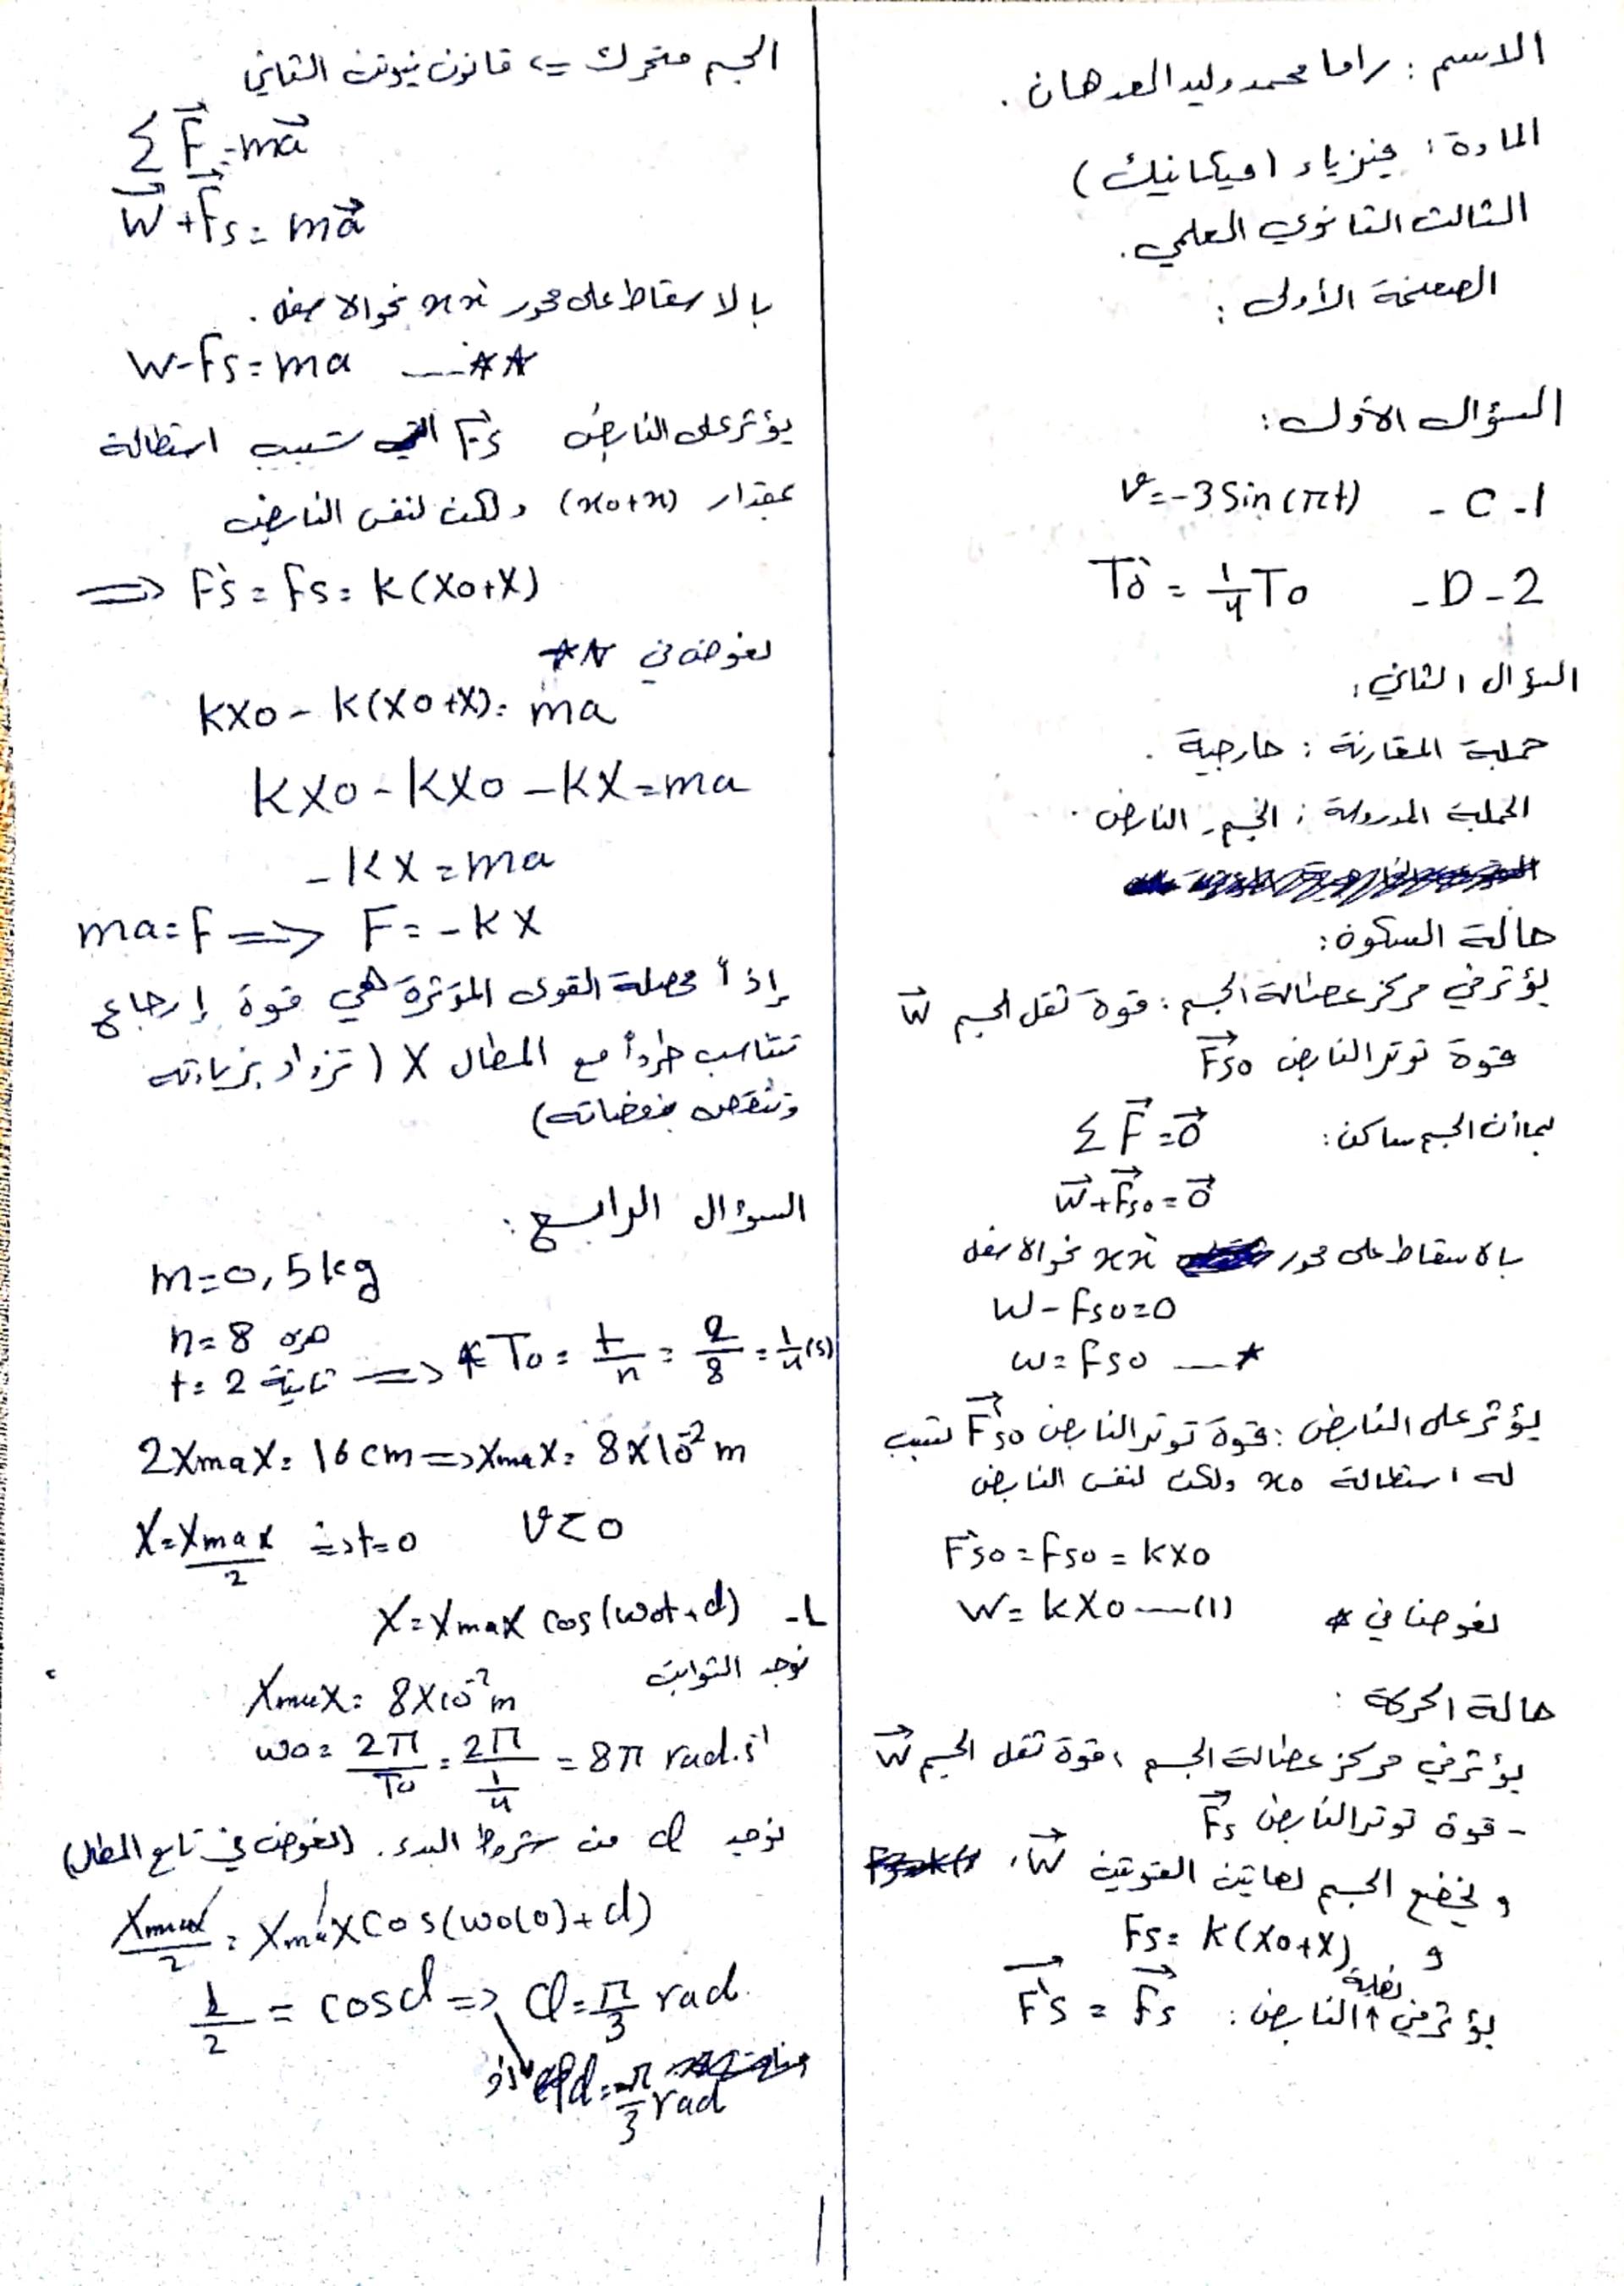 الاسم : راما محمد وليد الدهان .
المادة : فيزياء (ميكانيك)
الثالث الثانوي العلمي .
الصفحة الأولى :
السؤال الأول :
1 - C - v = -3 Sin(πt)
2 - D - T́o = 1/4 To
السؤال الثاني :
جملة المقارنة : خارجية .
الجملة المدروسة : الجسم - النابض .
حالة السكون :
يؤثر في مركز عطالة الجسم : قوة ثقل الجسم W⃗
قوة توتر النابض F⃗so
بما أن الجسم ساكن : Σ F⃗ = 0⃗
W⃗ + F⃗so = 0⃗
بالاسقاط على محور xx́ نحو الاسفل
W - Fso = 0
W = Fso — *
يؤثر على النابض : قوة توتر النابض F⃗́so تسبب
له استطالة x0 ولكن لنفس النابض
F́so = Fso = kxo
نعوضها في * W = kxo — (1)
حالة الحركة :
يؤثر في مركز عطالة الجسم ، قوة ثقل الجسم W⃗
- قوة توتر النابض F⃗s
و يخضع الجسم لهاتين القوتين W⃗ ،
و Fs = k(xo+x)
يؤثر في نقطة النابض : F⃗́s = F⃗s
الجسم متحرك <= قانون نيوتن الثاني
Σ F⃗ = ma⃗
W⃗ + F⃗s = ma⃗
بالاسقاط على محور xx́ نحو الاسفل .
W - Fs = ma — **
يؤثر على النابض F⃗́s التي تسبب استطالة
بمقدار (x0+x) ولكن لنفس النابض
=> F́s = Fs = k(xo+x)
نعوض في **
kxo - k(xo+x) = ma
kxo - kxo - kx = ma
- kx = ma
ma = F => F = -kx
إذاً محصلة القوى المؤثرة هي قوة إرجاع
تتناسب طرداً مع المطال x (تزداد بزيادته
وتنقص بنقصانه)
السؤال الرابع :
m = 0,5 kg
n = 8 هزة
t = 2 ثانية => * To = t/n = 2/8 = 1/4 (s)
2Xmax = 16 cm => Xmax = 8×10⁻² m
X = Xmax/2 => t = 0 v < 0
1- X = Xmax cos(ωot + φ)
نوجد الثوابت
Xmax = 8×10⁻² m
ωo = 2π/To = 2π/(1/4) = 8π rad.s⁻¹
نوجد φ من شروط البدء . (نعوض في تابع المطال)
Xmax/2 = Xmax cos(ωo(0) + φ)
1/2 = cosφ => φ = π/3 rad.
أو φ = -π/3 rad
1